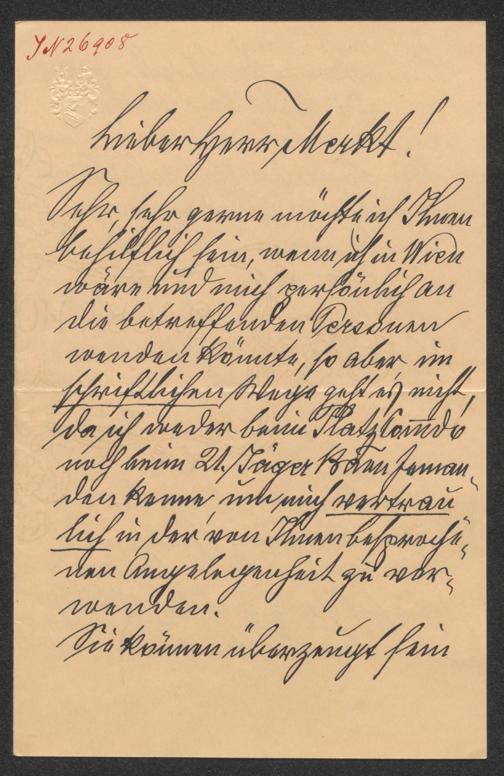 IN 26908
Lieber Herr Merkt!
Sehr, sehr gerne möchte ich Ihnen
behilflich sein, wenn ich in Wien
wäre und mich persönlich an
die betreffenden Personen
wenden könnte, so aber im
schriftlichen Wege geht es nicht,
da ich weder beim Platzcommdo
noch beim 21. Jäger Baon Jeman-
den kenne, um mich vertrau
lich in der von Ihnen besproche-
nen Angelegenheit zu ver-
wenden.
Sie können überzeugt sein